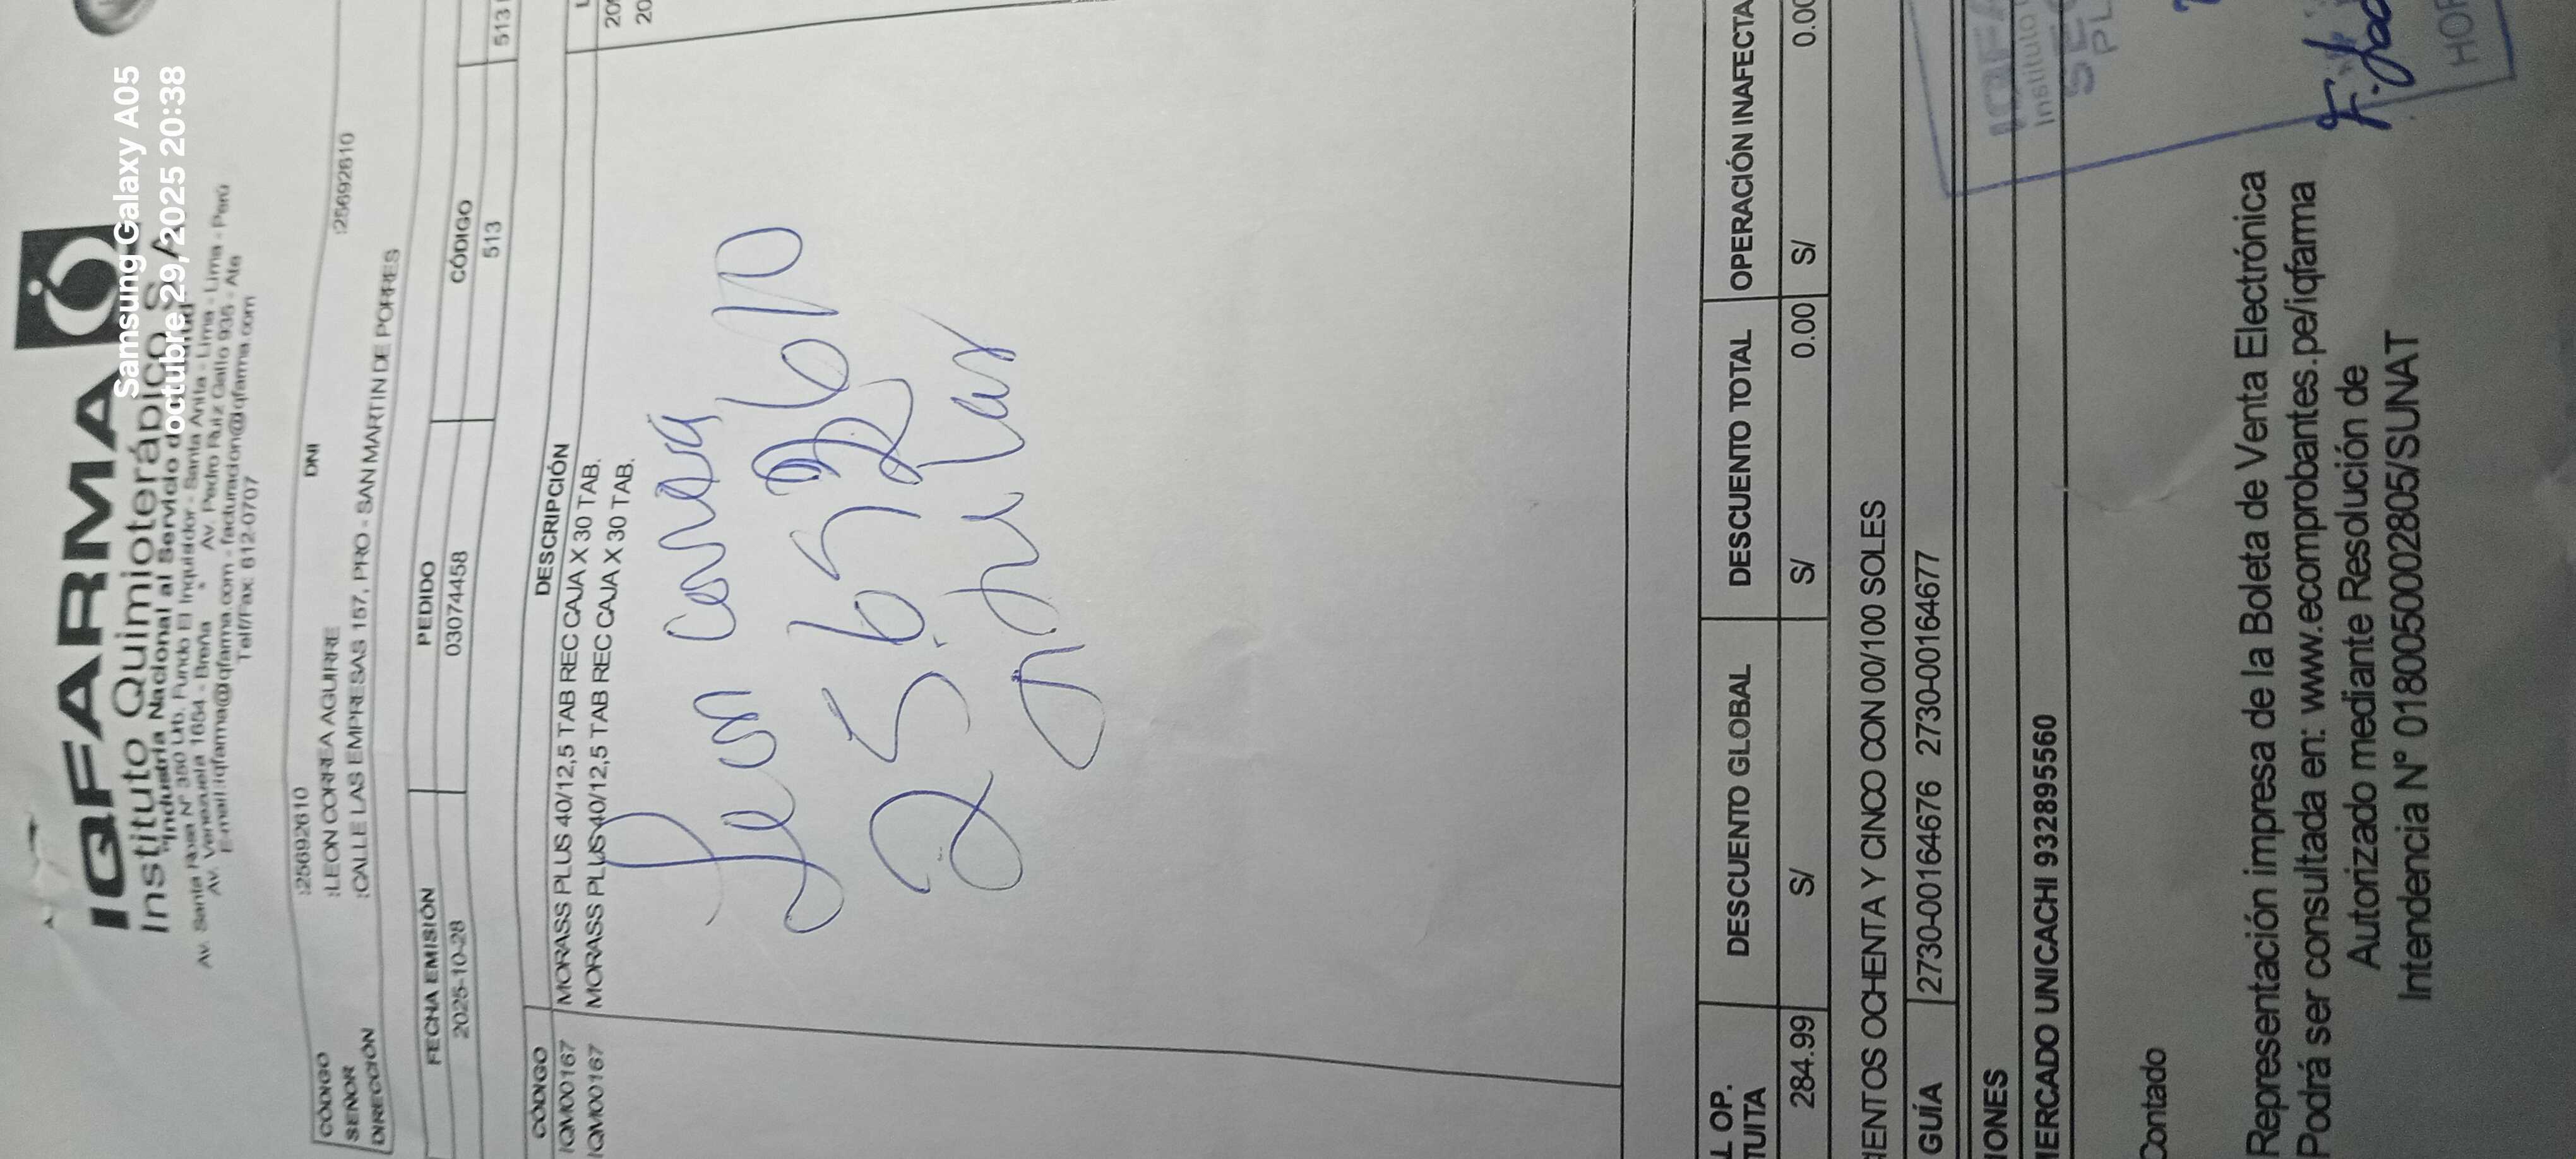 IQFARMA
Instituto Quimioterápico S.A
"Industria Nacional al Servicio de
Av. Santa Rosa N° 350 Urb. Fundo El Inquisidor - Santa Anita - Lima - Lima - Perú
Av. Venezuela 1654 - Breña * Av. Pedro Ruiz Gallo 935 - Ate
E-mail:iqfarma@iqfarma.com - facturacion@iqfarma.com
Telf/Fax: 612-0707
Samsung Galaxy A05
octubre 29, 2025 20:38
CÓDIGO :25692610 DNI :25692610
SEÑOR :LEON CORREA AGURRE
DIRECCIÓN :CALLE LAS EMPRESAS 157, PRO - SAN MARTIN DE PORRES
FECHA EMISIÓN PEDIDO CÓDIGO
2025-10-28 03074458 513 513
CÓDIGO DESCRIPCIÓN
IQM00167 MORASS PLUS 40/12,5 TAB REC CAJA X 30 TAB.
IQM00167 MORASS PLUS 40/12,5 TAB REC CAJA X 30 TAB.
Leon Correa
L OP. DESCUENTO GLOBAL DESCUENTO TOTAL OPERACIÓN INAFECTA
TUITA
284.99 S/ S/ 0.00 S/ 0.00
IENTOS OCHENTA Y CINCO CON 00/100 SOLES
GUÍA 2730-00164676 2730-00164677
IONES
MERCADO UNICACHI 932895560
Contado
Representación impresa de la Boleta de Venta Electrónica
Podrá ser consultada en: www.ecomprobantes.pe/iqfarma
Autorizado mediante Resolución de
Intendencia N° 0180050002805/SUNAT
IQFA
Instituto
HOR